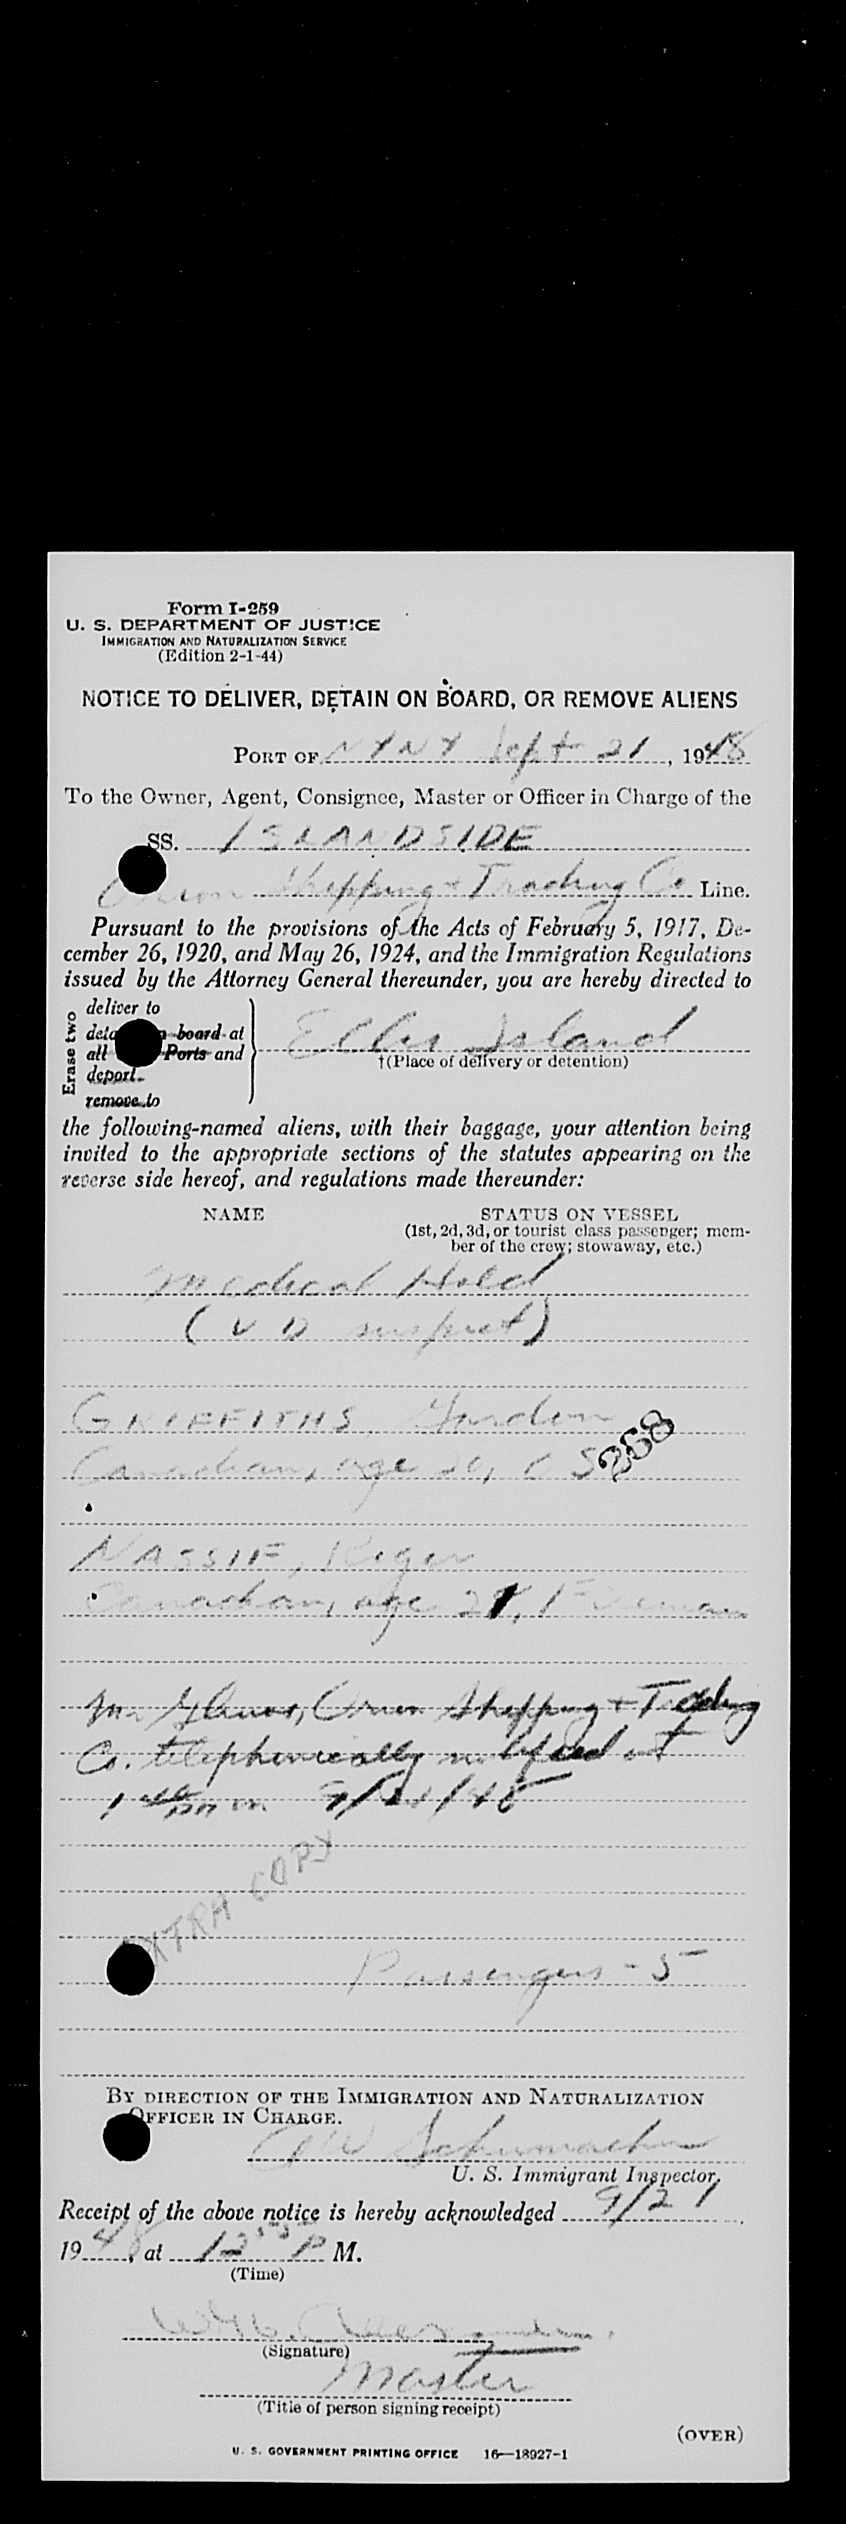 Form I-259
U. S. DEPARTMENT OF JUSTICE
IMMIGRATION AND NATURALIZATION SERVICE
(Edition 2-1-44)
NOTICE TO DELIVER, DETAIN ON BOARD, OR REMOVE ALIENS
PORT OF NYNY Sept 21, 1948
To the Owner, Agent, Consignee, Master or Officer in Charge of the
SS. ISLANDSIDE
Orion Shipping + Trading Co Line.
Pursuant to the provisions of the Acts of February 5, 1917, De-
cember 26, 1920, and May 26, 1924, and the Immigration Regulations
issued by the Attorney General thereunder, you are hereby directed to
Erase two
deliver to
board at
all Ports and
deport
remove to
Ellis Island
†(Place of delivery or detention)
the following-named aliens, with their baggage, your attention being
invited to the appropriate sections of the statutes appearing on the
reverse side hereof, and regulations made thereunder:
NAME STATUS ON VESSEL
(1st, 2d, 3d, or tourist class passenger; mem-
ber of the crew; stowaway, etc.)
Medical Hold
(VD suspect)
GRIFFITHS, Gordon
Canadian, age 20, OS
268
NASSIF, Roger
Canadian, age 21, Fireman
Mr Orion Shipping + Trading
Co. telephonically notified at
1 pm on 9/21/48
EXTRA COPY
Passengers - 5
BY DIRECTION OF THE IMMIGRATION AND NATURALIZATION
OFFICER IN CHARGE.
Schumacher
U. S. Immigrant Inspector.
Receipt of the above notice is hereby acknowledged 9/21
1948, at 12 P M.
(Time)
(Signature)
Master
(Title of person signing receipt)
(OVER)
U. S. GOVERNMENT PRINTING OFFICE 16—18927-1